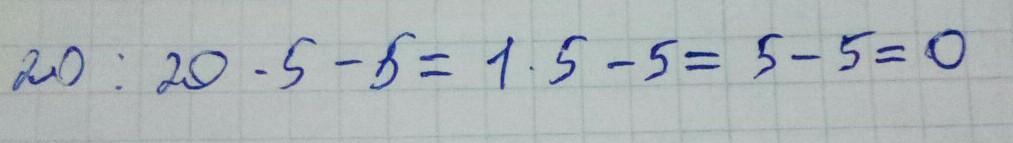 20 : 20 · 5 - 5 = 1 · 5 - 5 = 5 - 5 = 0